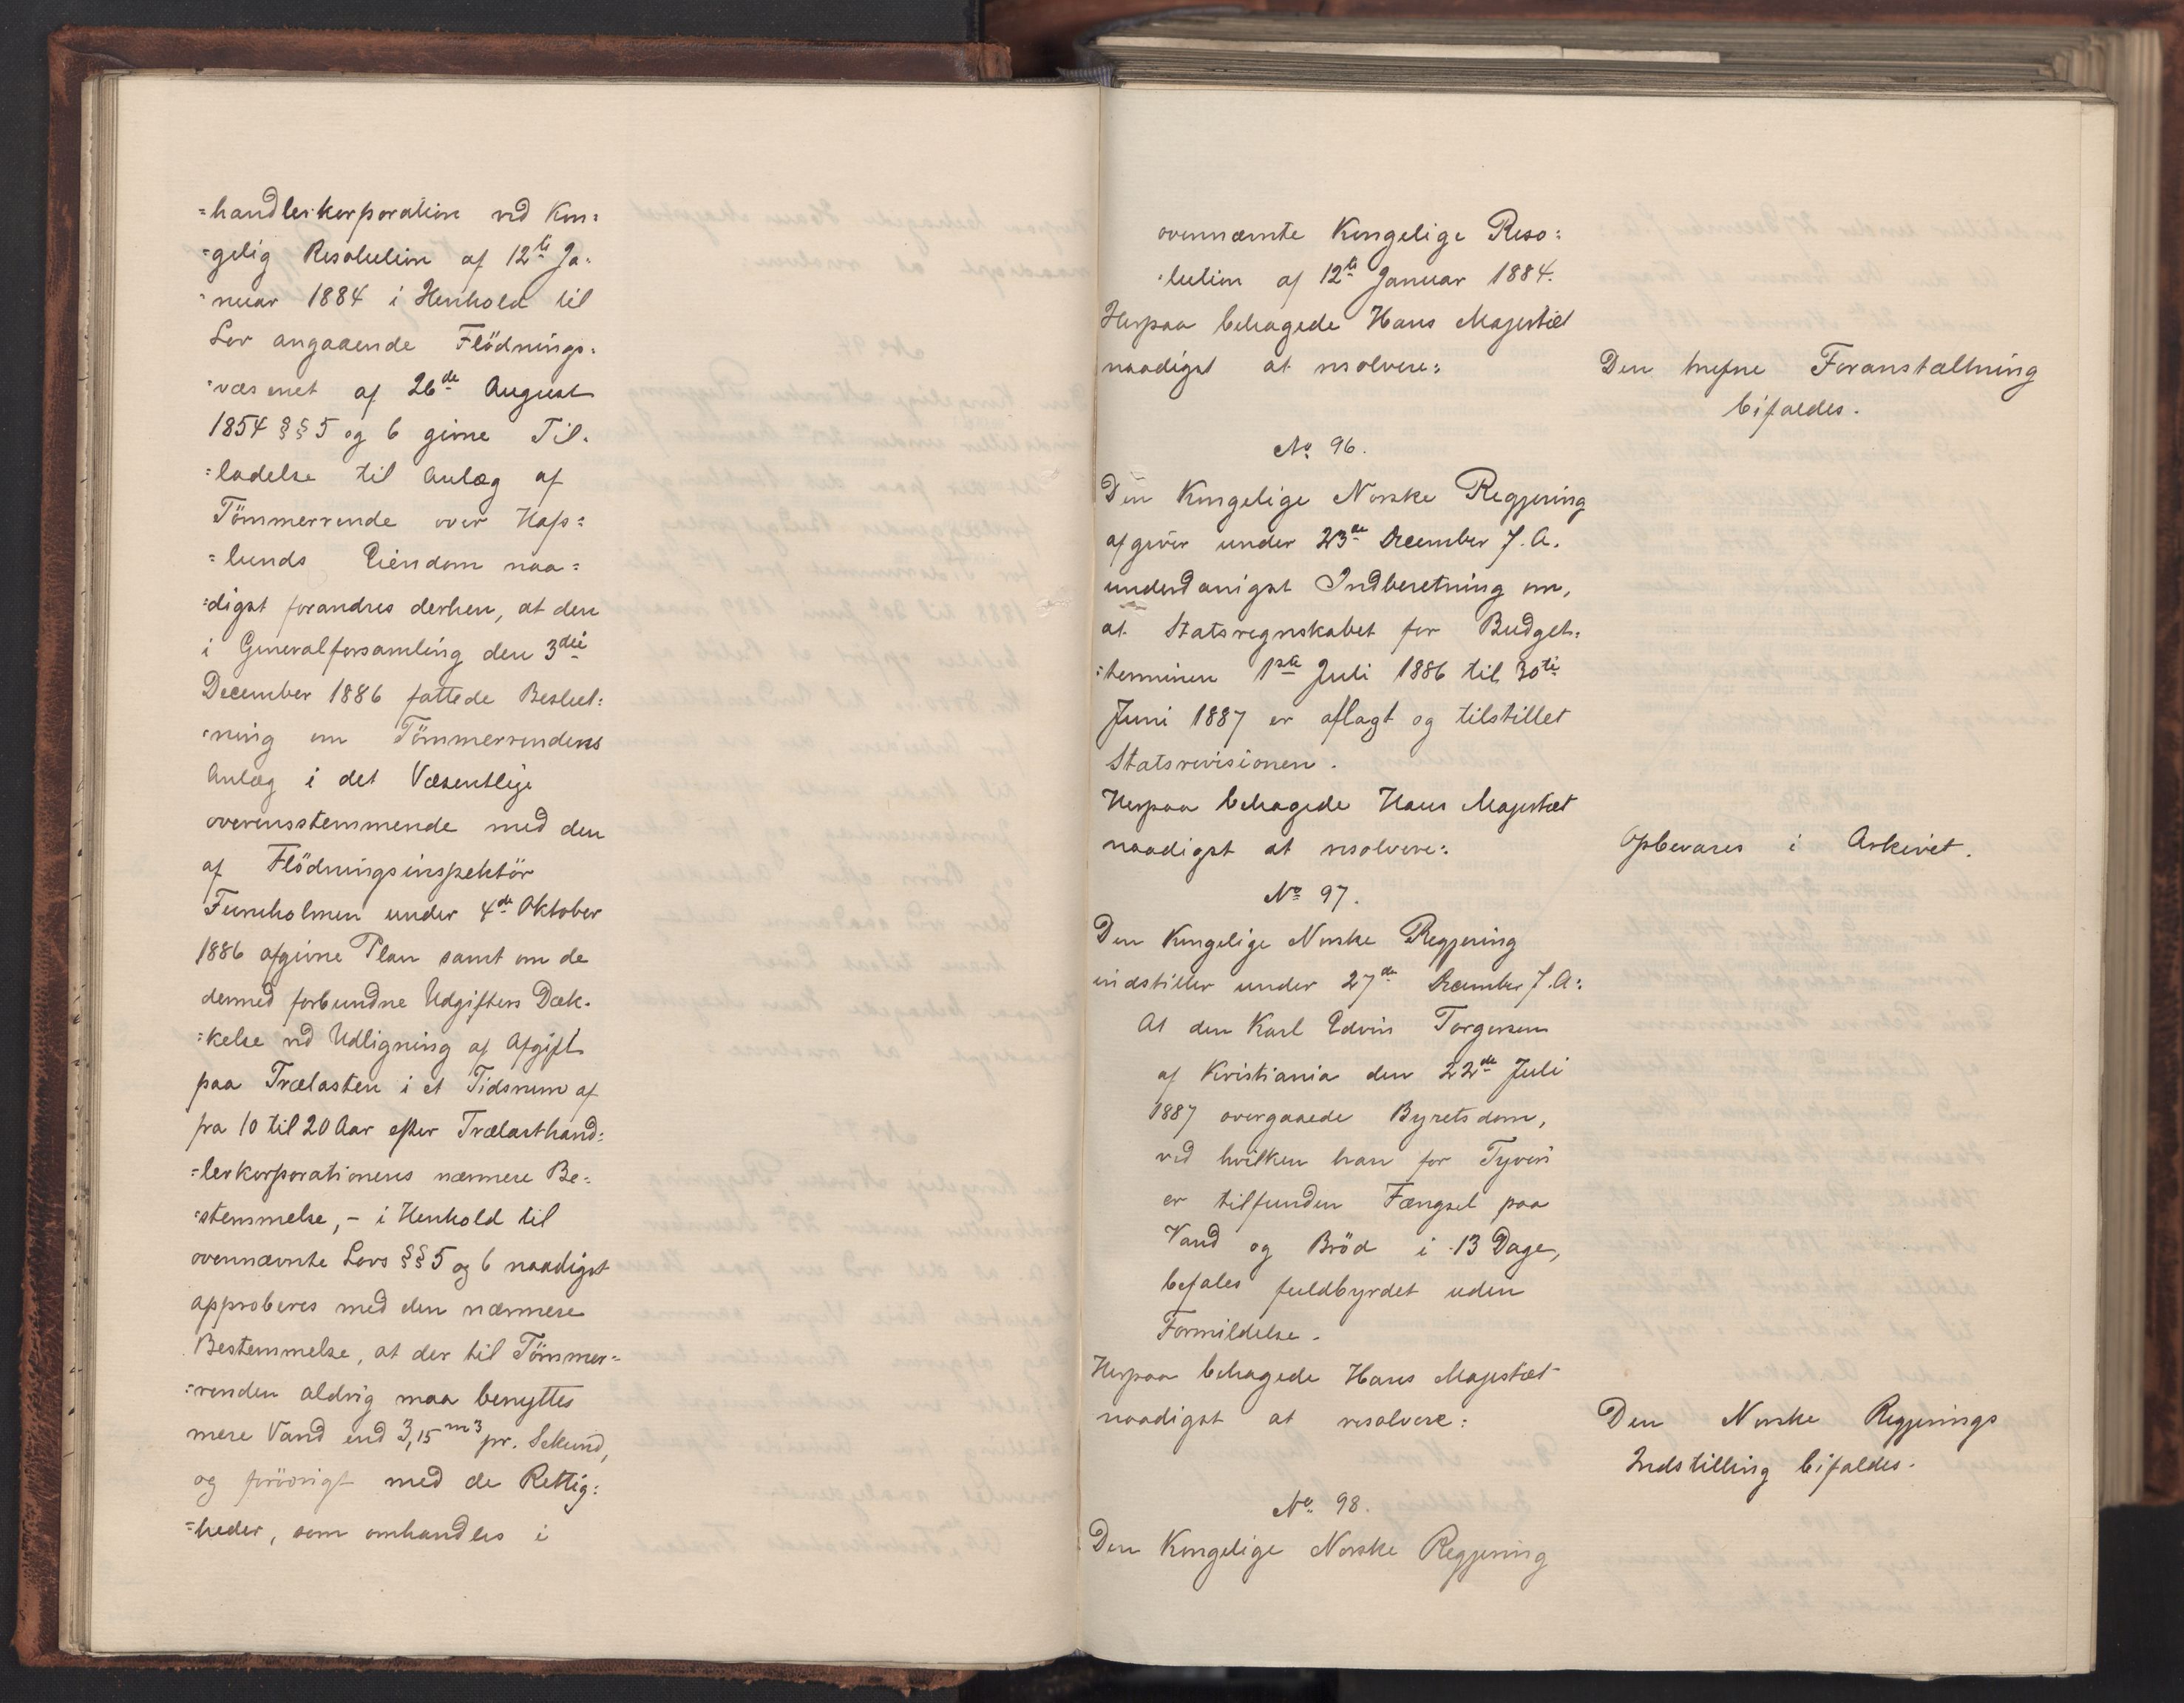 =handlerkorporation ved Kon=
=gelig Resolution af 12te Ja=
=nuar 1884 i Henhold til
Lov angaaende Flödnings=
=væsenet af 26de August
1854 §§ 5 og 6 givne Til=
=ladelse til Anlæg af
Tömmerrende over Hafs=
=lunds Eiendom naa=
=digst forandres derhen, at den
i Generalforsamling den 3die
December 1886 fattede Beslut=
=ning om Tömmerrendens
Anlæg i det Væsentlige
overensstemmende med den
af Flödningsinspektör
Furuholmen under 4de Oktober
1886 afgivne Plan samt om de
dermed forbundne Udgifters Dæk=
=kelse ved Udligning af Afgift
paa Trælasten i et Tidsrum af
fra 10 til 20 Aar efter Trælasthand=
=lerkorporationens nærmere Be=
=stemmelse, - i Henhold til
ovennævnte Lovs §§ 5 og 6 naadigst
approberes med den nærmere
Bestemmelse, at der til Tömmer=
=renden aldrig maa benyttes
mere Vand end 3,15 m3 pr. Sekund,
og forövrigt med de Rettig=
=heder, som omhandles i
ovennævnte Kongelige Reso=
=lution af 12te Januar 1884.
Herpaa behagede Hans Majestæt
naadigst at resolvere:
Den trufne Foranstaltning
bifaldes.
No 96.
Den Kongelige Norske Regjering
afgiver under 23de December f. A.
underdanigst Indberetning om,
at Statsregnskabet for Budget=
=terminen 1ste Juli 1886 til 30te
Juni 1887 er aflagt og tilstillet
Statsrevisionen.
Herpaa behagede Hans Majestæt
naadigst at resolvere:
Opbevares i Arkivet.
No 97.
Den Kongelige Norske Regjering
indstiller under 27de December f. A:
At den Karl Edvin Torgersen
af Kristiania den 22de Juli
1887 overgaaede Byretsdom,
ved hvilken han for Tyveri
er tilfunden Fængsel paa
Vand og Bröd i 13 Dage,
befales fuldbyrdet uden
Formildelse.
Herpaa behagede Hans Majestæt
naadigst at resolvere:
Den Norske Regjerings
Indstilling bifaldes.
No 98.
Den Kongelige Norske Regjering